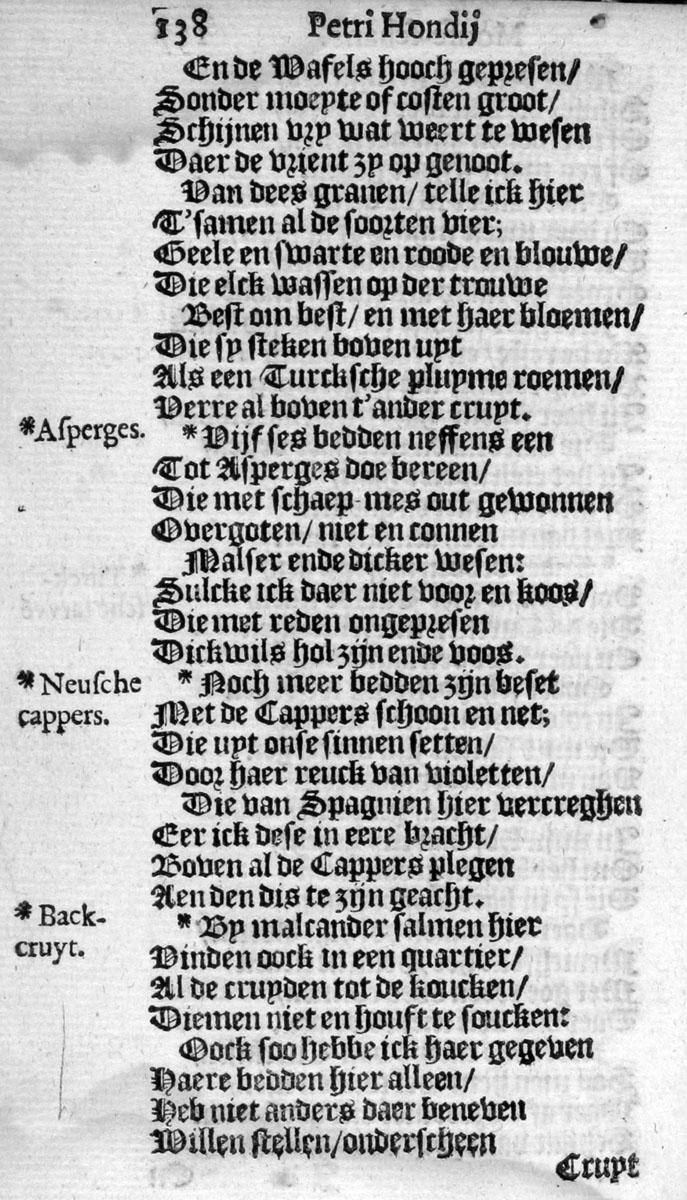 138 Petri Hondij
En de Wafels hooch gepresen/
Sonder moeyte of costen groot/
Schijnen vry wat weert te wesen
Daer de vrient zy op genoot.
Van dees granen/ telle ick hier
T'samen al de soorten vier;
Geele en swarte en roode en blouwe/
Die elck wassen op der trouwe
Best om best/ en met haer bloemen/
Die sy steken boven uyt
Als een Turcksche pluyme roemen/
Verre al boven t'ander cruyt.
*Asperges.
* Vijf ses bedden neffens een
Tot Asperges doe bereen/
Die met schaep-mes out gewonnen
Overgoten/ niet en connen
Malser ende dicker wesen:
Sulcke ick daer niet voor en koos/
Die met reden ongepresen
Dickwils hol zijn ende voos.
* Neusche
cappers.
* Noch meer bedden zijn beset
Met de Cappers schoon en net;
Die uyt onse sinnen setten/
Door haer reuck van violetten/
Die van Spagnien hier vercreghen
Eer ick dese in eere bracht/
Boven al de Cappers plegen
Aen den dis te zijn geacht.
* Back-
cruyt.
* By malcander salmen hier
Vinden oock in een quartier/
Al de cruyden tot de koucken/
Diemen niet en houft te soucken:
Oock soo hebbe ick haer gegeven
Haere bedden hier alleen/
Heb niet anders daer beneven
Willen stellen/onderscheen
Cruyt